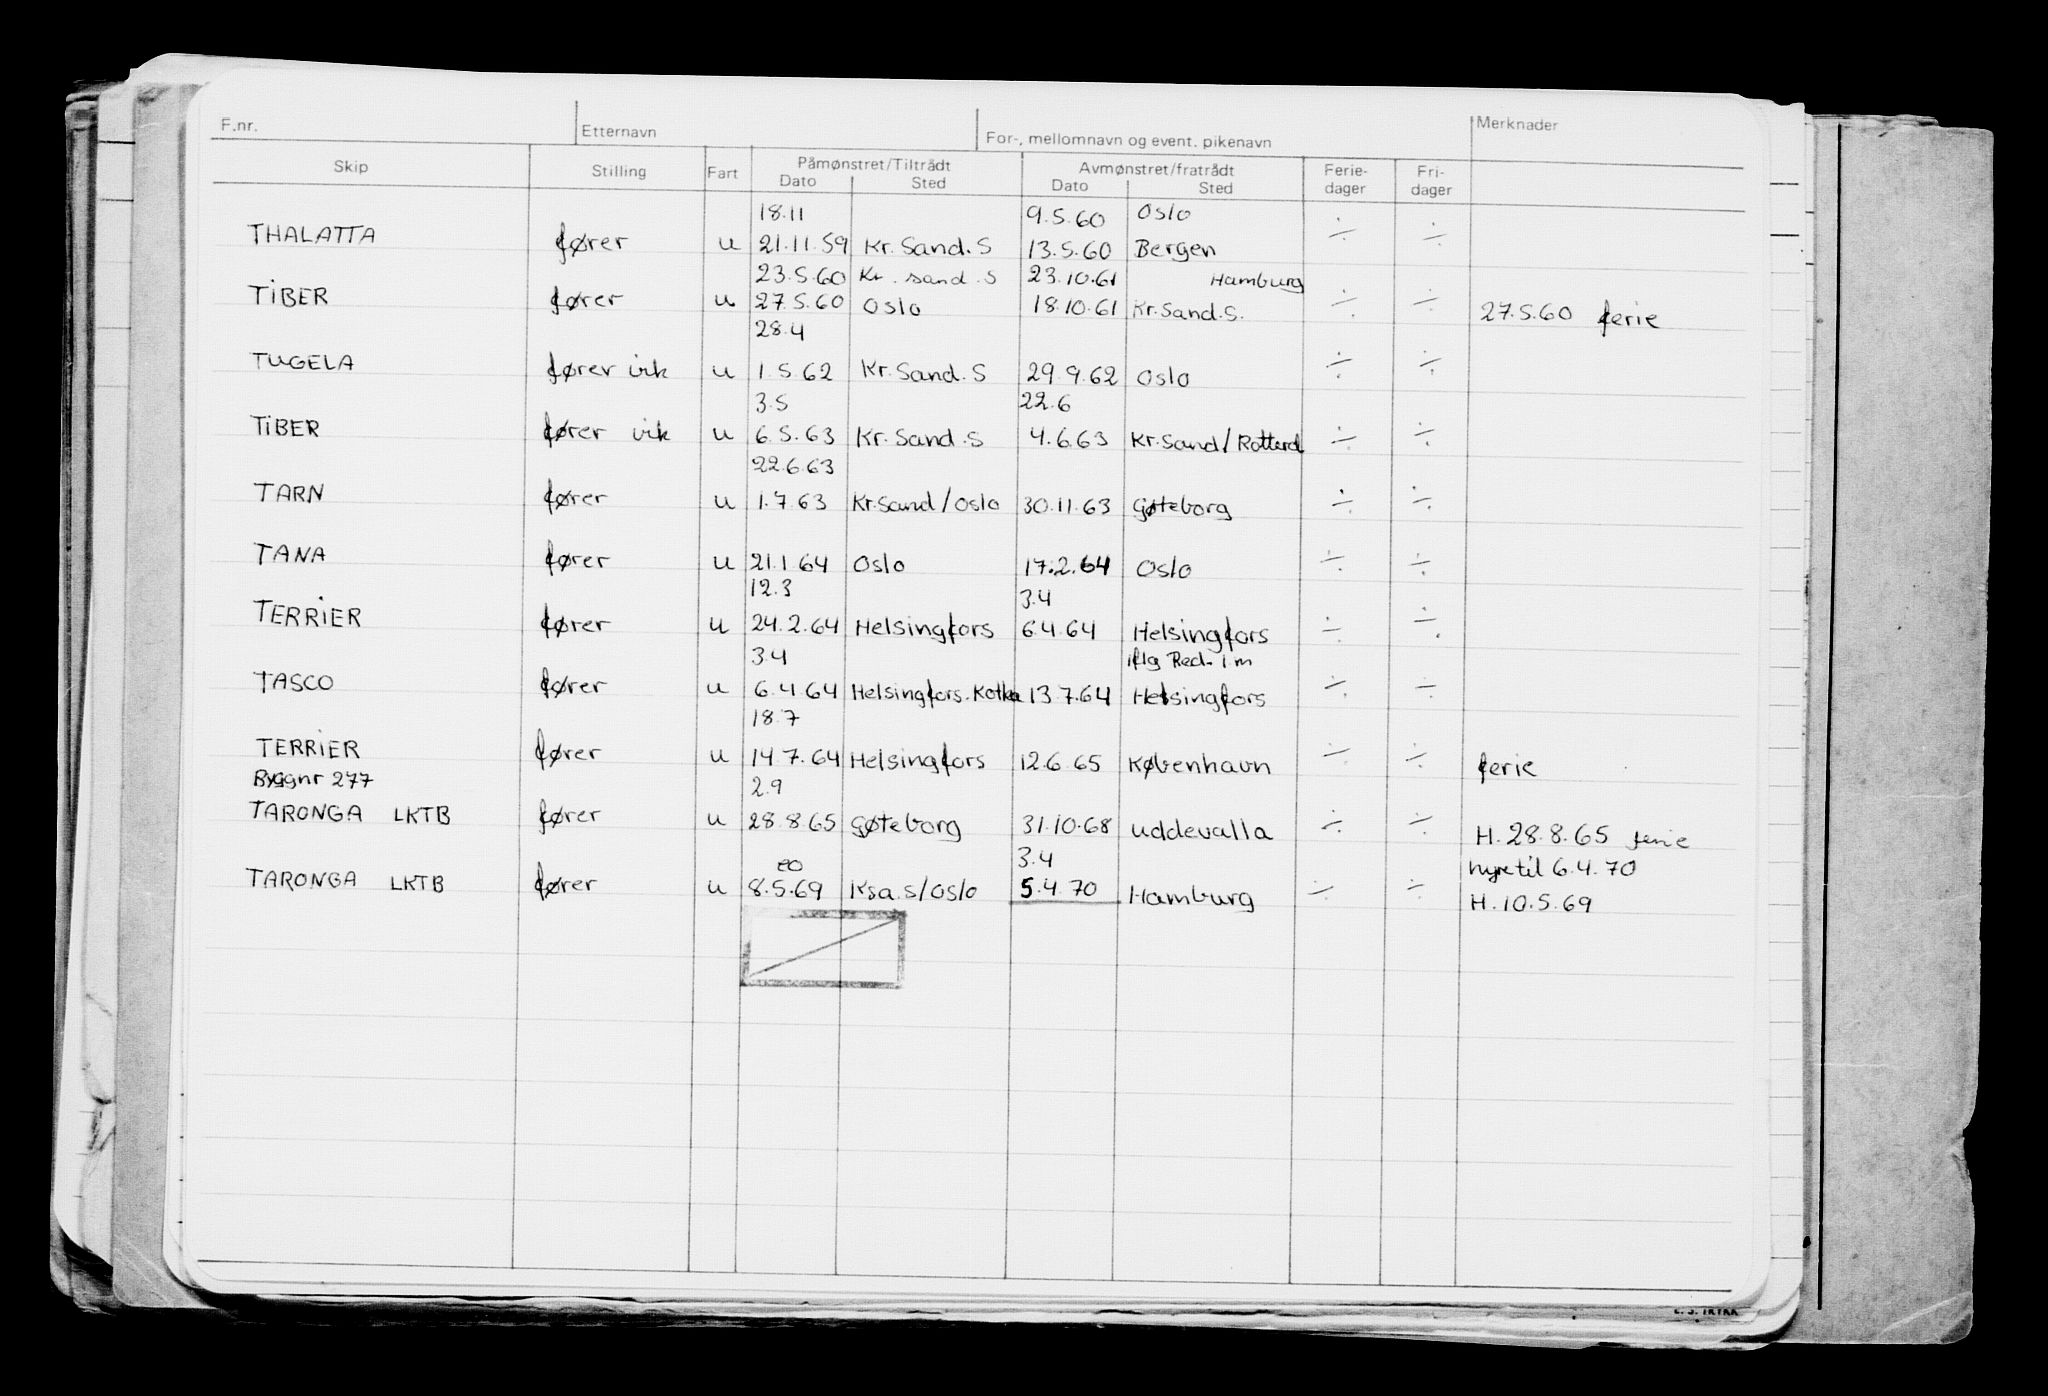 F.nr. Etternavn For-, mellomnavn og event. pikenavn Merknader
Skip Stilling Fart Påmønstret/Tiltrådt Avmønstret/fratrådt Ferie- Fri-
Dato Sted Dato Sted dager dager
18.11 9.5.60 Oslo
THALATTA fører u 21.11.59 Kr.Sand.S 13.5.60 Bergen ÷ ÷
23.5.60 Kr.sand.S 23.10.61 Hamburg
TIBER fører u 27.5.60 Oslo 18.10.61 Kr.Sand.S. ÷ ÷ 27.5.60 ferie
28.4
TUGELA fører vik u 1.5.62 Kr.Sand.S 29.9.62 Oslo ÷ ÷
3.5 22.6
TIBER fører vik u 6.5.63 Kr.Sand.S 4.6.63 Kr.Sand/Rotterd ÷ ÷
22.6.63
TARN fører u 1.7.63 Kr.Sand/Oslo 30.11.63 Gøteborg ÷ ÷
TANA fører u 21.1.64 Oslo 17.2.64 Oslo ÷ ÷
12.3 3.4
TERRIER fører u 24.2.64 Helsingfors 6.4.64 Helsingfors ÷ ÷
3.4 iflg Red. 1.m
TASCO fører u 6.4.64 Helsingfors.Kotka 13.7.64 Helsingfors ÷ ÷
18.7
TERRIER fører u 14.7.64 Helsingfors 12.6.65 København ÷ ÷ ferie
Byggnr 277 2.9
TARONGA LKTB fører u 28.8.65 Gøteborg 31.10.68 Uddevalla ÷ ÷ H.28.8.65 ferie
3.4 hyre til 6.4.70
TARONGA LKTB fører u 8.5.69 Ksa.S/Oslo 5.4.70 Hamburg ÷ ÷ H.10.5.69